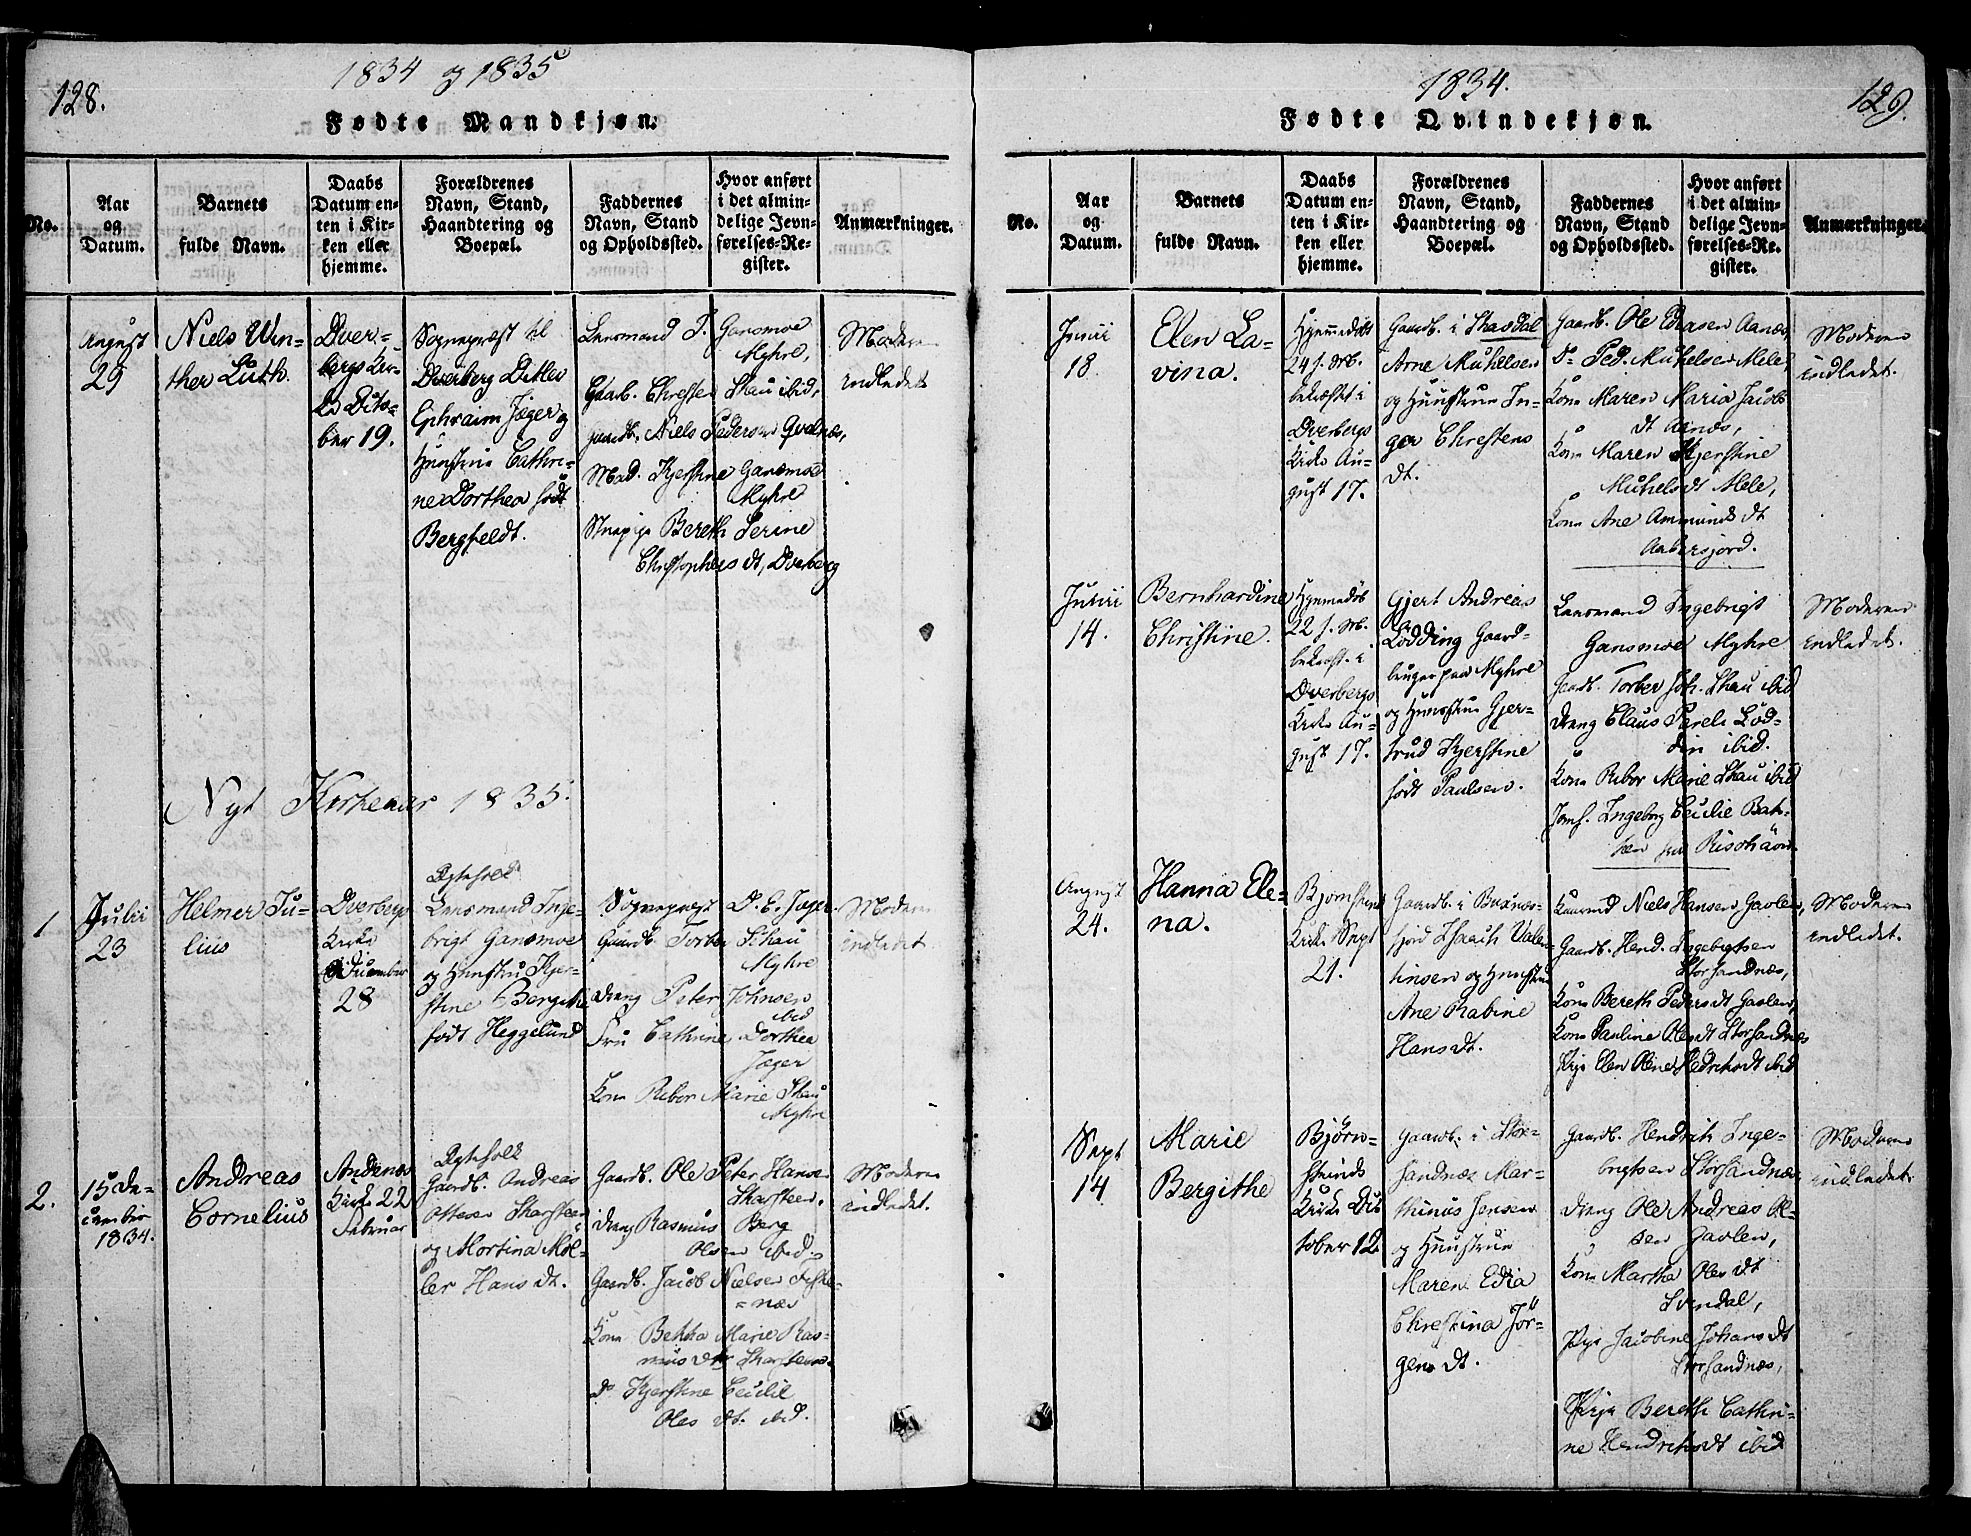 128.
1834 og 1835
Fødte Mandkjøn.
No.
Aar
og
Datum.
Barnets
fulde Navn.
Daabs
Datum en-
ten i Kir-
ken eller
hjemme.
Forældrenes
Navn, Stand,
Haandtering og
Boepæl.
Faddernes
Navn, Stand
og Opholdssted.
Hvor anført
i det almin-
delige Jevn-
førelses-Re-
gister.
Anmærkninger.
August
29
Niels Win-
ther Luth.
Dver-
bergs Kir-
ke Octo-
ber 19.
Sognepræst til
Dverberg Ditlev
Ephraim Jæger og
Hunstrue Cathri-
ne Dorthea født
Bergfeldt.
Lensmand I. Gansmoe
Myhre,
Gaardb. Chresten Skau ibid,
gaardb. Niels Pedersen Qvalnæs,
Mad. Kjerstine Gansmoe
Myhre
Pige Bereth Serine
Christophersdt, Dverberg
Moderen
indledet
Nyt Kirkeaar 1835.
1
Julii
23
Helmer Ju-
lius
Dverbergs
Kirke
December
28
Ægtefolk
Lensmand Inge-
brigt Gansmoe
og Hunstru Kjer-
stine Bergithe
født Heggelund
Sognepræst D. E. Jæger
Gaardb. Torber Schau
Myhre
Dreng Peter Johnsen
ibid
Fru Cathrine Dorthea
Jæger
Kone Rebor Marie Skau
Myhre
Moderen
indledet
2.
15 De-
cember
1834.
Andreas
Cornelius
Andenæs
Kirke 22
Februar
Ægtefolk
Gaardb. Andreas
Ottesen Skarsteen
og Martina Møl-
ler Hansdt.
Gaardb. Ole Peter Hansen
Skarsteen.
Dreng Rasmus Berg
Olsen ibid
Gaardb. Jacob Nielsen Fiske-
næs
Kone Marie Ras-
musdtr Skarsteen.
do Kjerstine Cecilie
Olesdt. ibid.
Moderen
indledet.
1834.
129.
Fødte Qvindekjøn.
No.
Aar
og
Datum.
Barnets
fulde Navn.
Daabs
Datum en-
ten i Kir-
ken eller
hjemme.
Forældrenes
Navn, Stand,
Haandtering og
Boepæl.
Faddernes
Navn, Stand
og Opholdssted.
Hvor anført
i det almin-
delige Jevn-
førelses-Re-
gister.
Anmærkninger.
Junii
18.
Elen La-
vina.
Hjemmedøbt
24 s. M.
bekræftet i
Dverbergs
Kirke Au-
gust 17.
Gaardb. i Skogdal
Arne Michelsen
og Hunstrue In-
ger Chrestens
dt.
Gaardb. Ole Aanæs,
do Ped. Michelsen Mele,
Kone Maren Maria Jacobs
dt Aanæs,
Kone Maren Kjerstine
Michelsdt Mele,
Kone Ane Ammundsdt
Aabersjord.
Moderen
indledet.
Junii
14.
Bernhardine
Christine.
Hjemmedøb
22 s. M.
bekræft. i
Dverbergs
Kirke Au-
gust 17.
Gjert Andreas
Lødding Gaard-
bruger paa Myhre
og Hunstrue Gjer-
trud Kjerstine
født Paulsen.
Lensmand Ingebrigt
Gansmoe Myhre
Gaardb. Torber Joh. Skau ibid
Dreng Claus Parels Lød-
din ibid.
Kone Rebor Marie Skau ibid
Jomf. Ingeborg Cecilie Bak-
ken paa Risøhavn
Moderen
indledet.
August
24.
Hanna Ele-
na.
Bjørnskinds
Kirke Sept
21.
Gaardb. i Buxnæs-
fjord Isaach Valen-
tinsen og Hunstrue
Ane Rabine
Hansdt.
Niels Hansen Gavlen,
Gaardb. Hend. Ingebrigtsen
Storsandnæs,
Kone Bereth Pedersdt Gavlen,
Kone Pauline Olesdt Storsandnæs
Pige Elen Oline Hedrichsdt ibid
Moderen
indledet.
Sept
14
Marie
Bergithe
Bjørn-
skinds
Kirke Oc-
tober 12
Gaardb. i Stor-
sandnæs Mar-
thinus Jensen
og Hunstrue
Maren Edia
Chrestina Jør-
gensdt.
Gaardb. Hendrich Inge-
brigtsen Storsandnæs,
Dreng Ole Andreas Ol-
sen Gavlen,
Kone Martha Olesdt
Svindal,
Pige Jacobine Johansdt
Storsandnæs,
Pige Bereth Cathri-
ne Hendrichsdt ibid
Moderen
indledet.